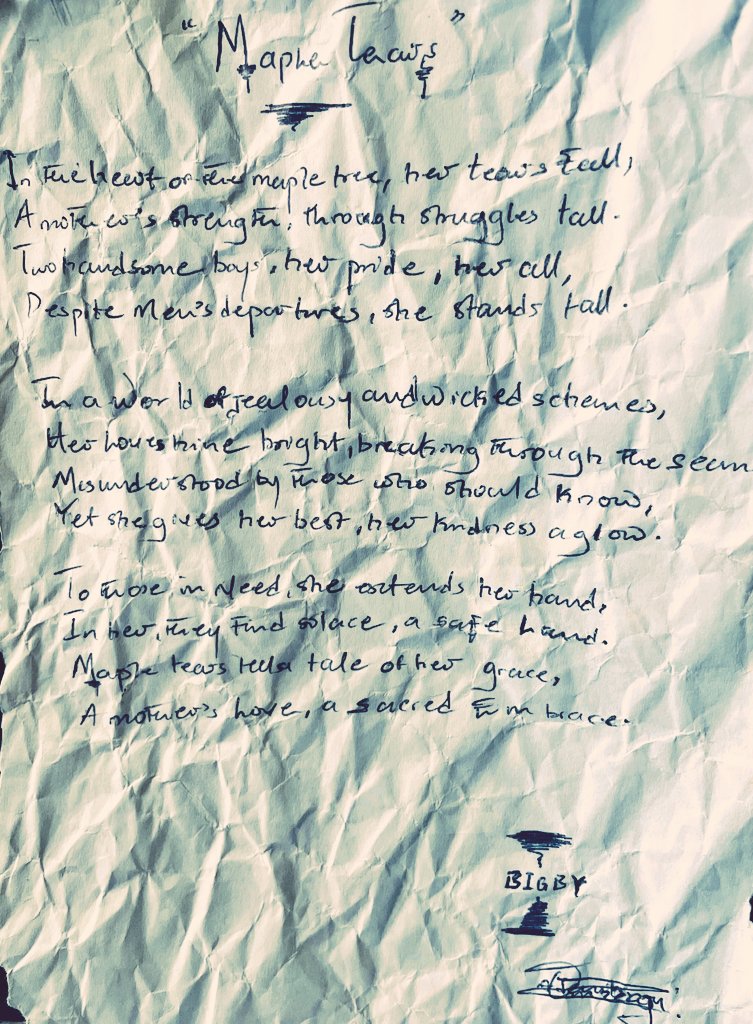 "Maple Tears"
In the heart of the maple tree, her tears fall,
A mother's strength, through struggles tall.
Two handsome boys, her pride, her all,
Despite Men's departures, she stands tall.
In a world of jealousy and wicked schemes,
Her love shine bright, breaking through the seam
Misunderstood by those who should know,
Yet she gives her best, her kindness aglow.
To those in Need, she extends her hand,
In her, they find solace, a safe hand.
Maple tears tell a tale of her grace,
A mother's love, a sacred Embrace.
BIGBY